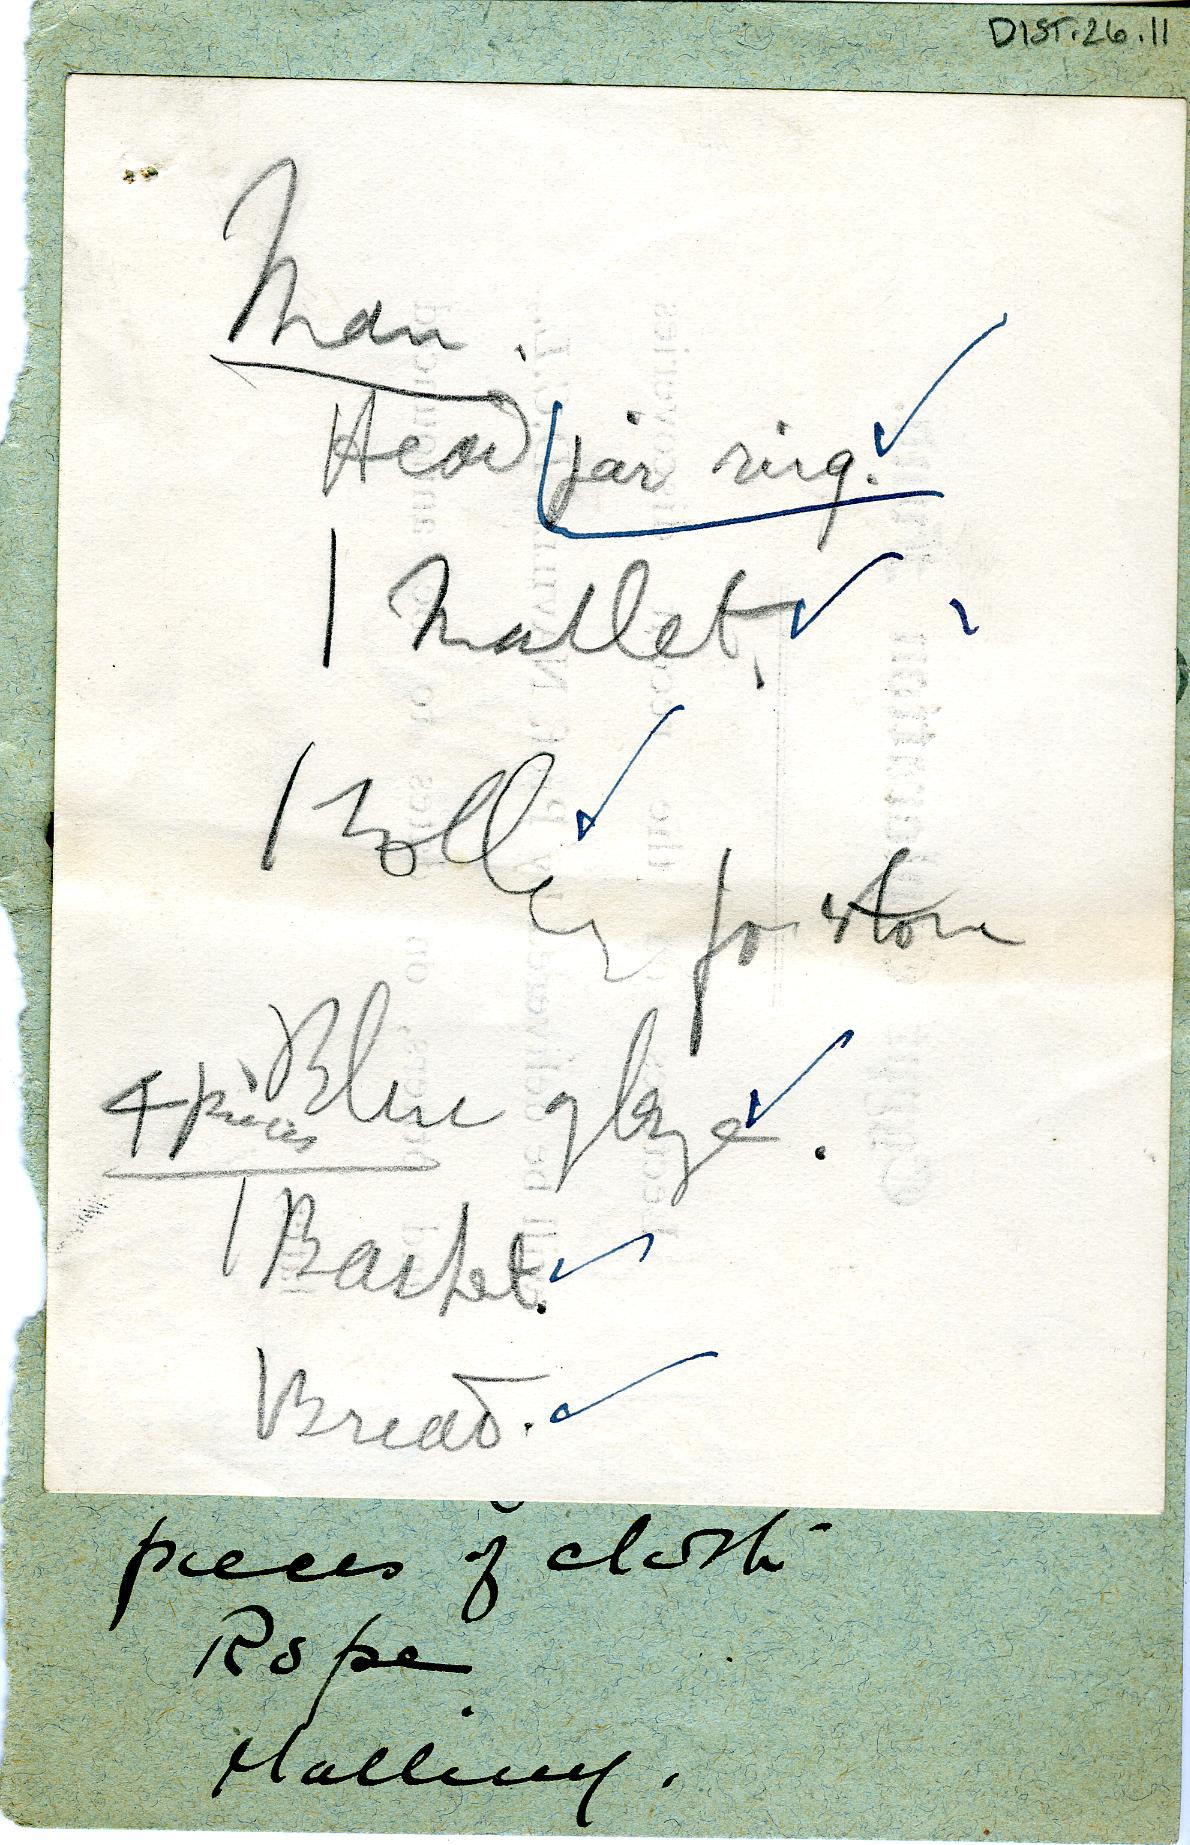 DIST.26.11
Man.
Head jar ring. ✓
1 Mallet. ✓
1 Roller ✓ for stone
Blue glaze ✓.
4 pieces
1 Basket. ✓
Bread. ✓
pieces of cloth
Rope